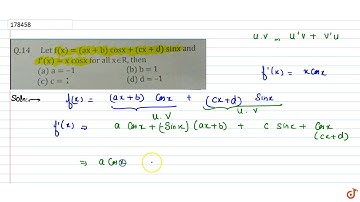 178458
u.v = u'v + v'u
Q.14 Let f(x) = (ax + b) cosx + (cx + d) sinx and
f'(x) = x cosx for all x∈R, then
(a) a = -1 (b) b = 1
(c) c = (d) d = -1
f'(x) = x cosx
Soln:→ f(x) = (ax+b) Cosx + (cx+d) Sinx
u. v u. v
f'(x) ⇒ a Cosx + (-Sinx) (ax+b) + c sinx + Cosx (cx+d)
⇒ a Cosx